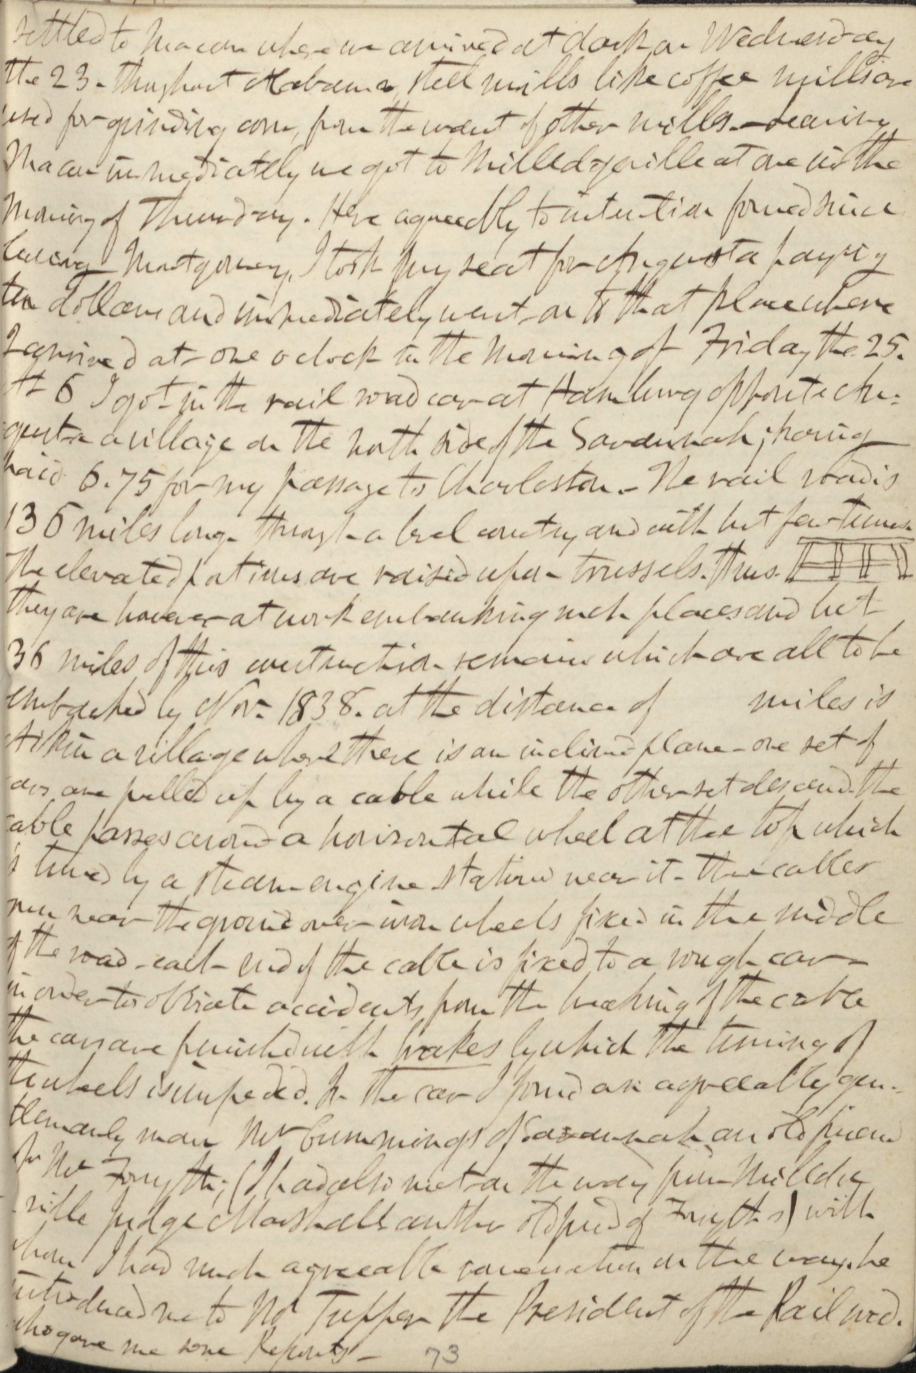 settled to Macon where we arrived at dark on Wednesday
the 23 - throughout Alabama, steel mills like coffee mills are
used for grinding corn, from the want of other mills. - Leaving
Macon immediately we got to Milledgeville at one in the
morning of Thursday. Here agreeably to intention formed since
leaving Montgomery, I took my seat for Augusta paying
ten dollars and immediately went on to that place where
I arrived at one o clock in the morning of Friday the 25.
At 6 I got in the rail road car at Hamburg opposite Au=
gusta a village on the north side of the Savannah; having
paid 6.75 for my passage to Charleston. - The rail road is
136 miles long through a level country and with but few turns
The elevated portions are raised upon trussels. thus.
they are however at work embanking such places and but
36 miles of this construction remains which are all to be
embanked by Nov. 1838. at the distance of miles is
Aikin a village where there is an inclined plane - one set of
cars are pulled up by a cable while the other set descend. the
cable passes around a horisontal wheel at the top which
is turned by a steam engine stationed near it - the cables
run near the ground over iron wheels fixed in the middle
of the road - each end of the cable is fixed to a rough car -
in order to obviate accidents from the breaking of the cable
the cars are furnished with brakes by which the turning of
the wheels is impeded. In the car I found an agreeably gen-
tlemanly man Mr Cummings of Savannah an old friend
of Mr Forsyth; (I had also met on the way from Milledge
ville Judge Marshall another old friend of Forsyth s) with
whom I had much agreeable conversation on the way. he
introduced me to Mr Tupper the President of the Rail road.
who gave me some Reports -
73